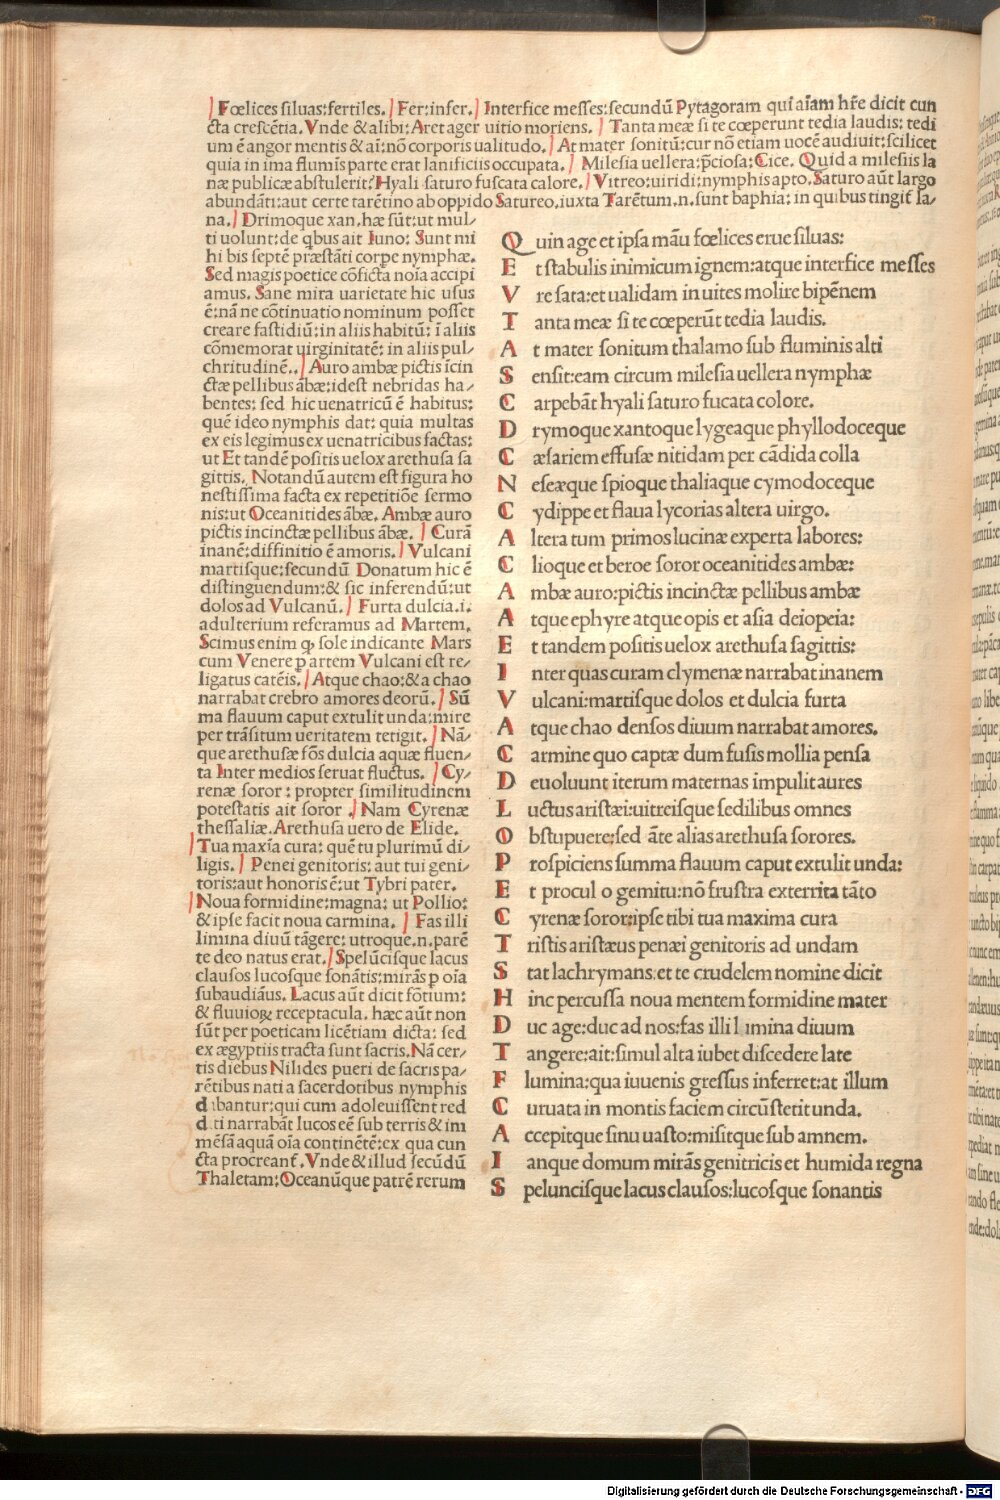 Fœlices siluas:fertiles. Fer:infer. Interfice messes:secundū Pytagoram qui aīam hr̄e dicit cun
cta crescētia. Vnde & alibi: Aret ager uitio moriens. Tanta meæ si te cœperunt tedia laudis: tedi
um ē angor mentis & ai: nō corporis ualitudo. At mater sonitū:cur nō etiam uocē audiuit:scilicet
quia in ima flumīs parte erat lanificiis occupata. Milesia uellera:p̄ciosa:Cice. Quid a milesiis la
næ publicæ abstulerit:Hyali saturo fuscata calore. Vitreo:uiridi:nymphis apto. Saturo aūt largo
abundāti:aut certe tarētino ab oppido Satureo.iuxta Tarētum.n.sunt baphia: in quibus tingit̄ la-
na. Drimoque xan.hæ sūt:ut mul-
ti uolunt:de qbus ait Iuno: Sunt mi
hi bis septē præstāti corpe nymphæ.
Sed magis poetice cōficta noīa accipi
amus. Sane mira uarietate hic usus
ē:nā ne cōtinuatio nominum posset
creare fastidiū:in aliis habitū: ī aliis
cōmemorat uirginitatē: in aliis pul-
chritudinē.. Auro ambæ pictis īcin
ctæ pellibus ābæ:idest nebridas ha-
bentes: sed hic uenatricū ē habitus:
quē ideo nymphis dat: quia multas
ex eis legimus ex uenatricibus factas:
ut Et tandē positis uelox arethusa sa
gittis. Notandū autem est figura ho
nestissima facta ex repetitiōe sermo
nis:ut Oceanitides ābæ. Ambæ auro
pictis incinctæ pellibus ābæ. Curā
inanē:diffinitio ē amoris. Vulcani
martisque:secundū Donatum hic ē
distinguendum:& sic inferendū:ut
dolos ad Vulcanū. Furta dulcia.i.
adulterium referamus ad Martem.
Scimus enim ꝙ sole indicante Mars
cum Venere ꝑ artem Vulcani est re-
ligatus catēis. Atque chao:& a chao
narrabat crebro amores deorū. Sū
ma flauum caput extulit unda:mire
per trāsitum ueritatem tetigit. Nā-
que arethusæ fōs dulcia aquæ fluen-
ta Inter medios seruat fluctus. Cy-
renæ soror : propter similitudinem
potestatis ait soror . Nam Cyrenæ
thessaliæ. Arethusa uero de Elide.
Tua maxīa cura: quē tu plurimū di-
ligis. Penei genitoris: aut tui geni-
toris:aut honoris ē:ut Tybri pater.
Noua formidine:magna: ut Pollio:
& ipse facit noua carmina. Fas illi
limina diuū tāgere: utroque.n.parē
te deo natus erat. Spelūcisque lacus
clausos lucosque sonātis:mirās ꝑ oīa
subaudiāus. Lacus aūt dicit fōtium:
& fluuioꝝ receptacula. hæc aūt non
sūt per poeticam licētiam dicta: sed
ex ægyptiis tracta sunt sacris. Nā cer-
tis diebus Nilides pueri de sacris pa-
rētibus nati a sacerdotibus nymphis
dabantur:qui cum adoleuissent red
diti narrabāt lucos eē sub terris & im
mēsā aquā oīa continētē:ex qua cun
cta procreant̄. Vnde & illud secūdū
Thaletam:Oceanūque patrē rerum
Quin age et ipsa māu fœlices erue siluas:
Et stabulis inimicum ignem:atque interfice messes
Vre sata:et ualidam in uites molire bipēnem
Tanta meæ si te cœperūt tedia laudis.
At mater sonitum thalamo sub fluminis alti
Sensit:eam circum milesia uellera nymphæ
Carpebāt hyali saturo fucata colore.
Drymoque xantoque lygeaque phyllodoceque
Cæsariem effusæ nitidam per cādida colla
Neseæque spioque thaliaque cymodoceque
Cydippe et flaua lycorias altera uirgo.
Altera tum primos lucinæ experta labores:
Clioque et beroe soror oceanitides ambæ:
Ambæ auro:pictis incinctæ pellibus ambæ
Atque ephyre atque opis et asia deiopeia:
Et tandem positis uelox arethusa sagittis:
Inter quas curam clymenæ narrabat inanem
Vulcani:martisque dolos et dulcia furta
Atque chao densos diuum narrabat amores.
Carmine quo captæ dum fusis mollia pensa
Deuoluunt iterum maternas impulit aures
Luctus aristæi:uitreisque sedilibus omnes
Obstupuere:sed āte alias arethusa sorores.
Prospiciens summa flauum caput extulit unda:
Et procul o gemitu:nō frustra exterrita tāto
Cyrenæ soror:ipse tibi tua maxima cura
Tristis aristæus penæi genitoris ad undam
Stat lachrymans:et te crudelem nomine dicit
Hinc percussa noua mentem formidine mater
Duc age:duc ad nos:fas illi limina diuum
Tangere:ait:simul alta iubet discedere late
Flumina:qua iuuenis gressus inferret:at illum
Curuata in montis faciem circūstetit unda.
Accepitque sinu uasto:misitque sub amnem.
Ianque domum mirās genitricis et humida regna
Speluncisque lacus clausos:lucosque sonantis
Digitalisierung gefördert durch die Deutsche Forschungsgemeinschaft - DFG